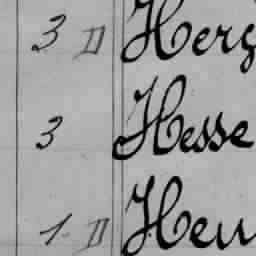 3 II Herz
3 Hesse
1. II Heu